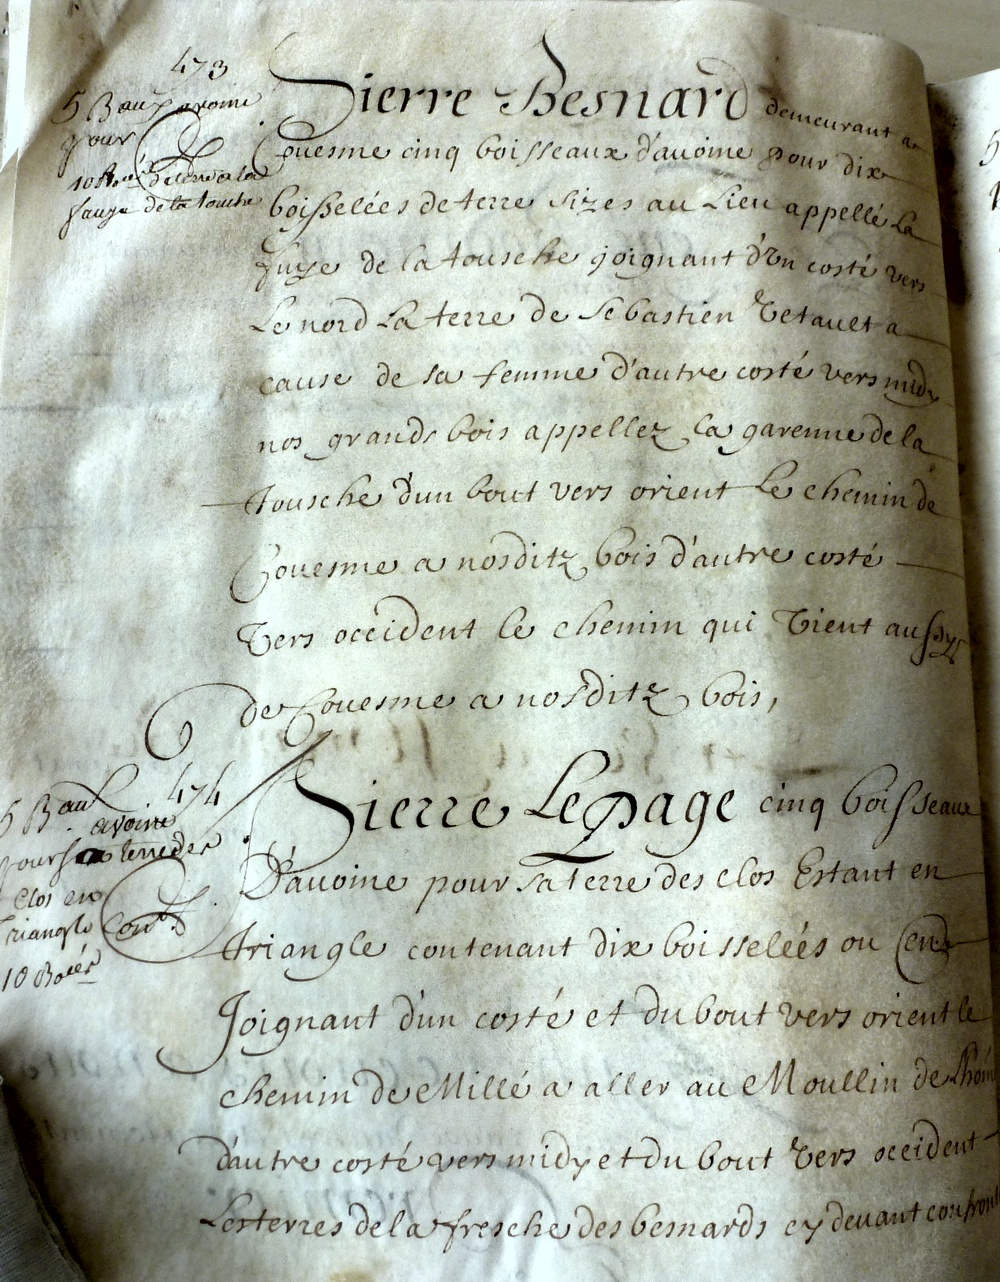 473
5 Baux avoine
pour
10 Boées de terre a la
fuye de la touche
Pierre Besnard demeurant a
Couesme cinq boisseaux d'auoine pour dix
boisselées de terre sizes au Lieu appellé La
fuye de la tousche joignant d'Vn costé vers
Le nord La terre de Sebastien Vetault a
cause de sa femme d'autre costé vers midy
nos grands bois appellez la garenne de la
Tousche d'un bout vers orient Le chemin de
Couesme a nosditz bois d'autre costé
Vers occident le chemin qui Vient aussy
de Couesme a nosditz bois,
474
5 Baux
avoine
pour sa terre des
clos en
triangle Cont
10 Boées
Pierre Lepage cinq boisseaux
D'auoine pour sa terre des clos Estant en
triangle contenant dix boisselées ou Cen
Joignant d'un costé et du bout vers orient le
chemin de Millé a aller au Moullin de
d'autre costé vers midy et du bout Vers occident
Les terres de la fresche des besnards cy devant confront